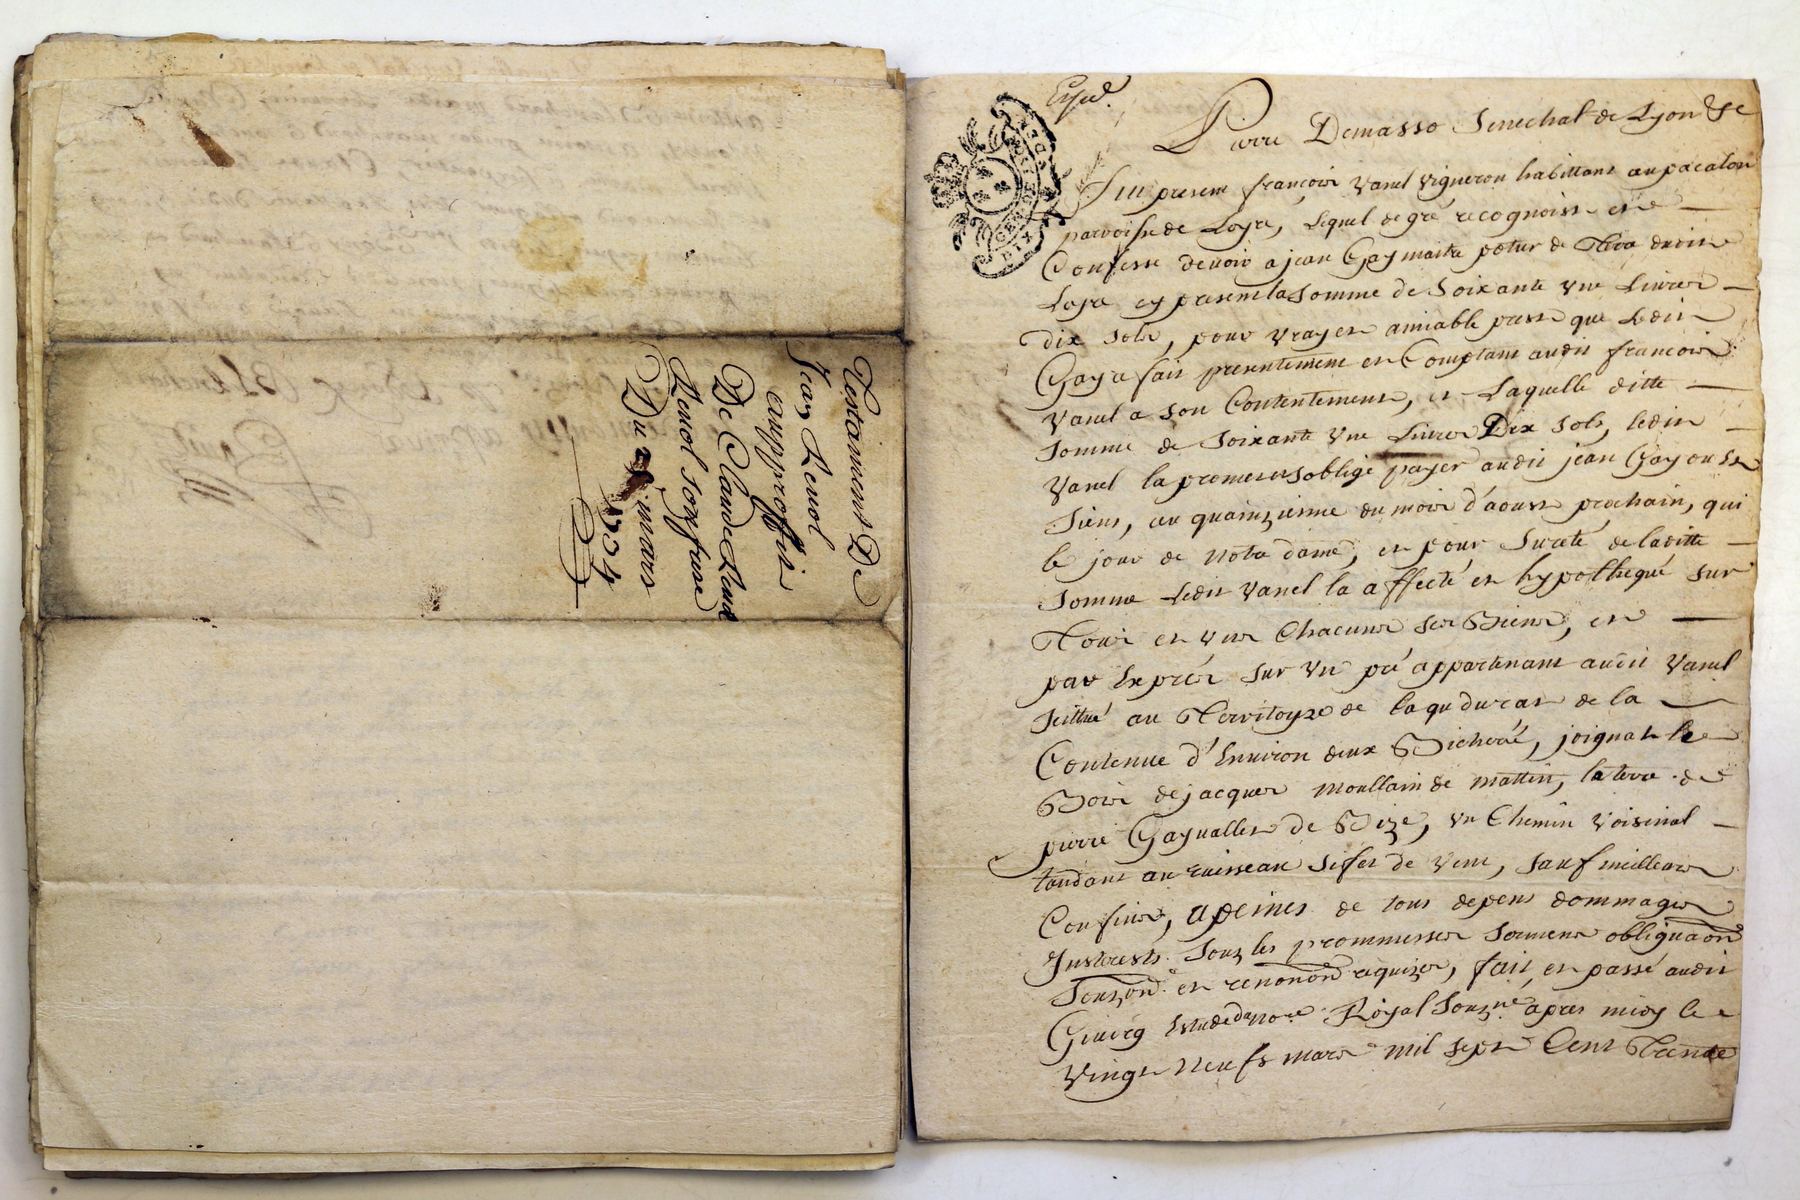 Testament De
Jean Renol
aupproffis
De Claude Renol
Renol son frere
Du mars
1734
Expé.
Pierre Demasso Senechal de Lyon &c
Fut present françois Vanel Vigneron habittant au pacalon
parroisse de Loyre, Lequel de gré recognoist et
Confesse devoir a jean Gay maitre potier de Terre dudit
Loyre cy present la somme de Soixante Une Livres
dix sols, pour vray et amiable prest que Ledit
Gay a fait presentement et Comptant audit francois
Vanel a son Contentement, et Laquelle ditte
somme de Soixante Une Livres Dix sols, ledit
Vanel la promet et s'oblige payer audit jean Gay ou les
siens, au quainzieme du mois d'aoust prochain, qui
le jour de Notre dame, et pour sureté de laditte
somme Ledit Vanel la affecté et hypothequé sur
Tous et uns Chacuns ses Biens, et
par Exprés sur un pré appartenant audit Vanel
scittué au Territoyre de de la
Contenue d'Environ deux Bicheré, joignat le
Bois de jacques moullain de mattin, la terre de
pierre de Bize, un Chemin Voisinal
tendant au ruisseau de vent, sauf meilleurs
Confins, a peines de tous depens dommages
Interests. Souz les prommesses serment obligaõn
Souzõn. et renonõn requizes, fait et passé audit
Givorz Estude du nore. Royal Souzné après midy le
Vingt Neufs mars mil sept Cent Trente